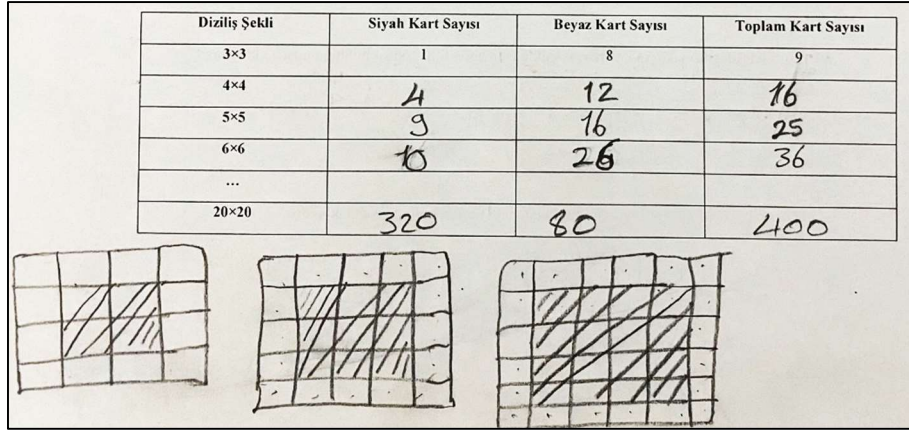 Diziliş Şekli Siyah Kart Sayısı Beyaz Kart Sayısı Toplam Kart Sayısı
3×3 1 8 9
4×4 4 12 16
5×5 9 16 25
6×6 10 26 36
...
20×20 320 80 400